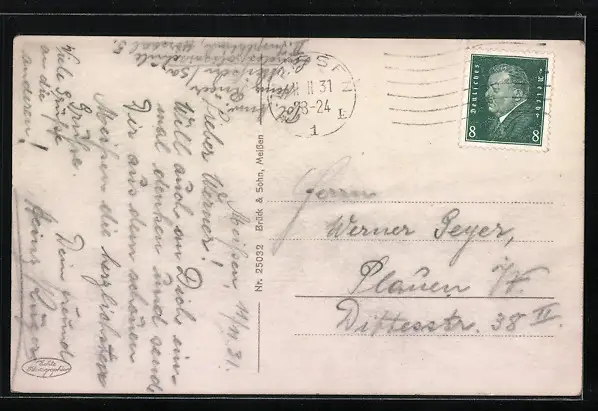 Meißen, 11/11. 31.
Lieber Werner!
Will auch an Dich ein-
mal denken und sende
Dir aus dem schönen
Meißen die herzlichsten
Grüße.
Dein Freund
Heinz Krüger
Viele Grüße
an die
anderen!
Nr. 25032 Brück & Sohn, Meißen
31
8-24
1
Deutsches Reich
8 8
Herrn
Werner Geyer,
Plauen i/V.
Dittesstr. 38 II.
Echte